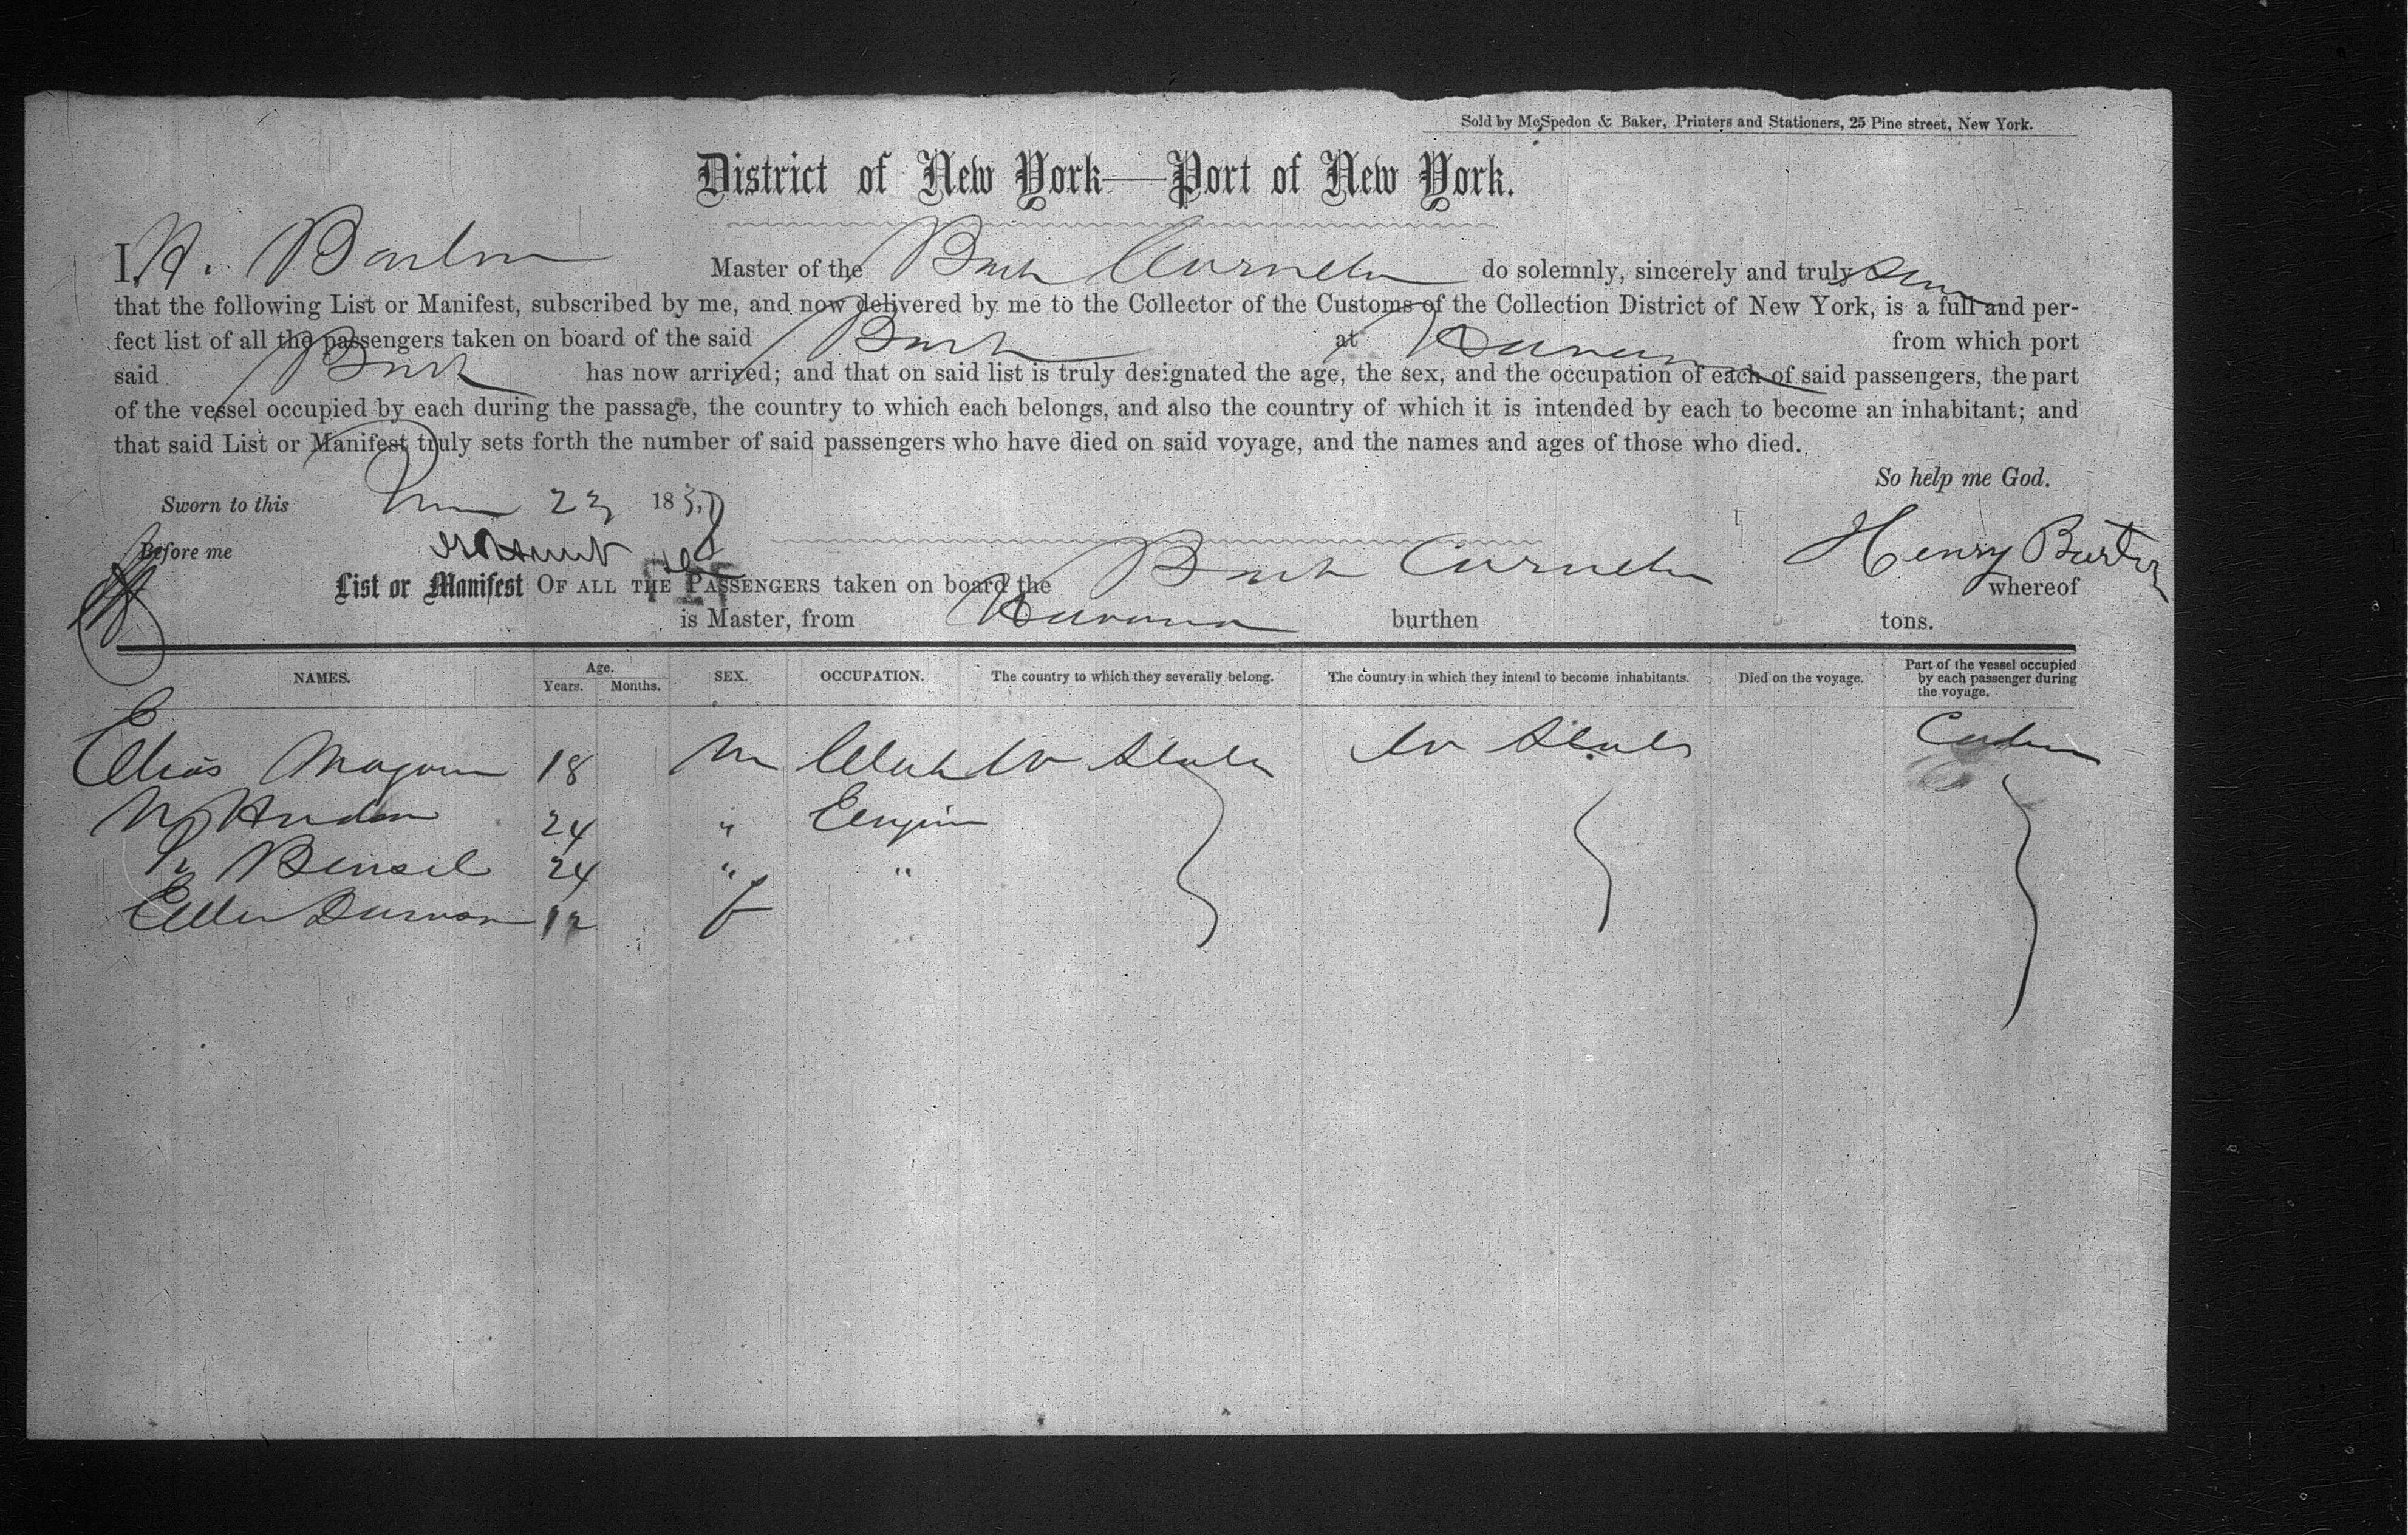 Sold by McSpedon & Baker, Printers and Stationers, 25 Pine street, New York.
District of New York—Port of New York.
I, H. Master of the Bark do solemnly, sincerely and truly
that the following List or Manifest, subscribed by me, and now delivered by me to the Collector of the Customs of the Collection District of New York, is a full and per-
fect list of all the passengers taken on board of the said Bark at Havana from which port
said Bark has now arrived; and that on said list is truly designated the age, the sex, and the occupation of each of said passengers, the part
of the vessel occupied by each during the passage, the country to which each belongs, and also the country of which it is intended by each to become an inhabitant; and
that said List or Manifest truly sets forth the number of said passengers who have died on said voyage, and the names and ages of those who died.
So help me God.
Sworn to this 23 185
Before me Henry
List or Manifest OF ALL THE PASSENGERS taken on board the Bark whereof
is Master, from Havana burthen tons.
NAMES. Age. Years. Months. SEX. OCCUPATION. The country to which they severally belong. The country in which they intend to become inhabitants. Died on the voyage. Part of the vessel occupied by each passenger during the voyage.
Elias 18 M Clerk U States U States Cabin
24 "
Bensel 24 " "
Ellen 12 f